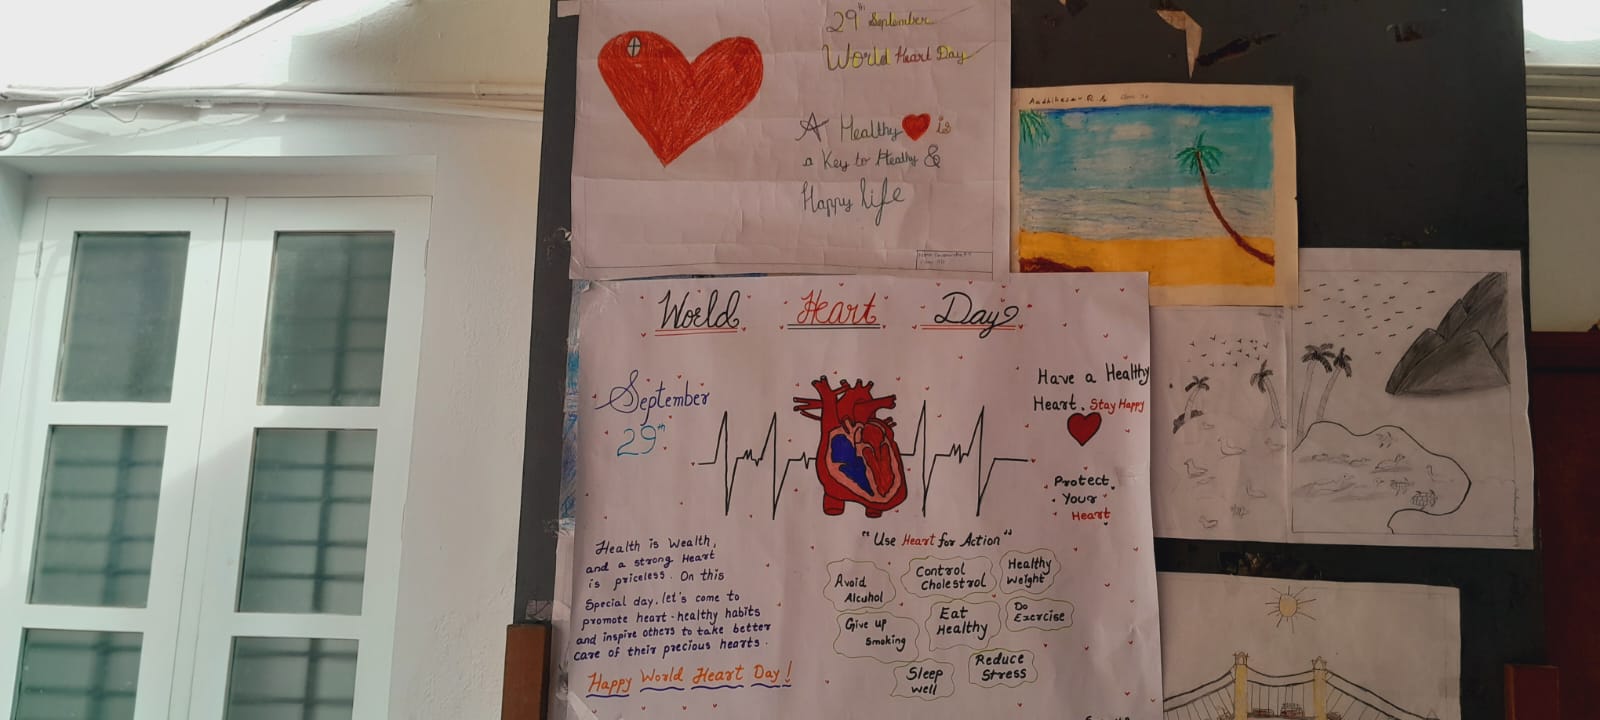 29th September
World Heart Day
A Healthy is
a Key to Healthy &
Happy life
World Heart Day
September
29th
Have a Healthy
Heart. Stay Happy
Protect
Your
Heart
Health is Wealth,
and a strong Heart
is priceless. On this
Special day, let's come to
promote heart-healthy habits
and inspire others to take better
care of their precious hearts.
Happy World Heart Day!
"Use Heart for Action"
Avoid
Alcuhol
Control
Cholestrol
Healthy
Weight
Give up
Smoking
Eat
Healthy
Do
Exercise
Sleep
well
Reduce
Stress